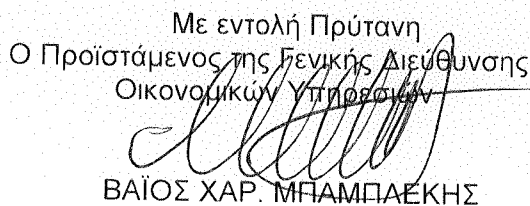 Με εντολή Πρύτανη
Ο Προϊστάμενος της Γενικής Διεύθυνσης
Οικονομικών Υπηρεσιών
ΒΑΪΟΣ ΧΑΡ. ΜΠΑΜΠΛΕΚΗΣ